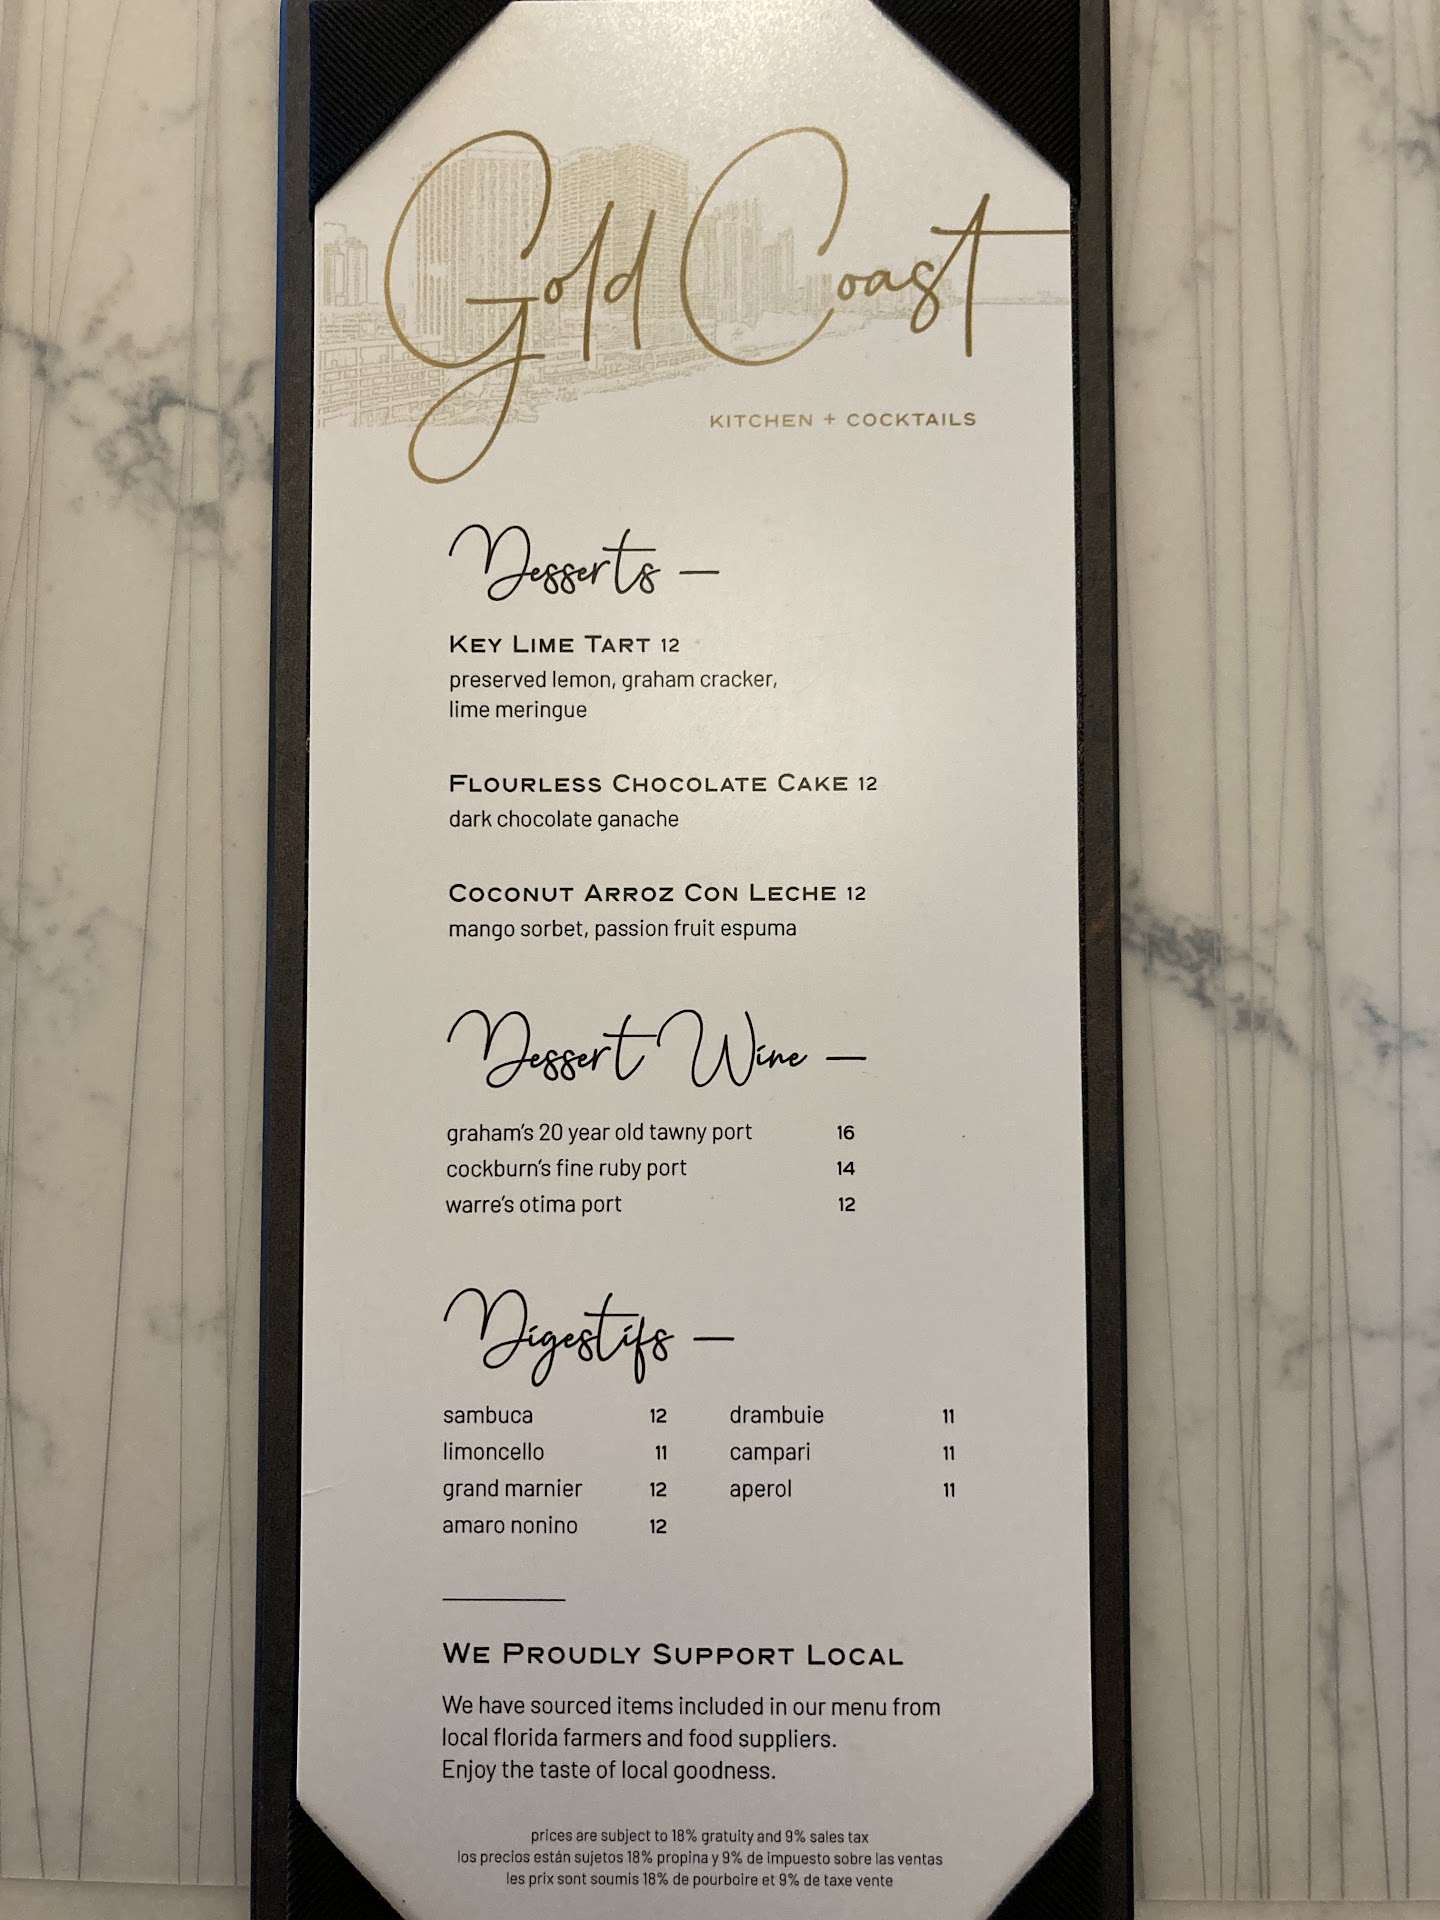 Gold Coast
KITCHEN + COCKTAILS
Desserts —
KEY LIME TART 12
preserved lemon, graham cracker,
lime meringue
FLOURLESS CHOCOLATE CAKE 12
dark chocolate ganache
COCONUT ARROZ CON LECHE 12
mango sorbet, passion fruit espuma
Dessert Wine —
graham's 20 year old tawny port 16
cockburn's fine ruby port 14
warre's otima port 12
Digestifs —
sambuca 12 drambuie 11
limoncello 11 campari 11
grand marnier 12 aperol 11
amaro nonino 12
WE PROUDLY SUPPORT LOCAL
We have sourced items included in our menu from
local florida farmers and food suppliers.
Enjoy the taste of local goodness.
prices are subject to 18% gratuity and 9% sales tax
los precios están sujetos 18% propina y 9% de impuesto sobre las ventas
les prix sont soumis 18% de pourboire et 9% de taxe vente